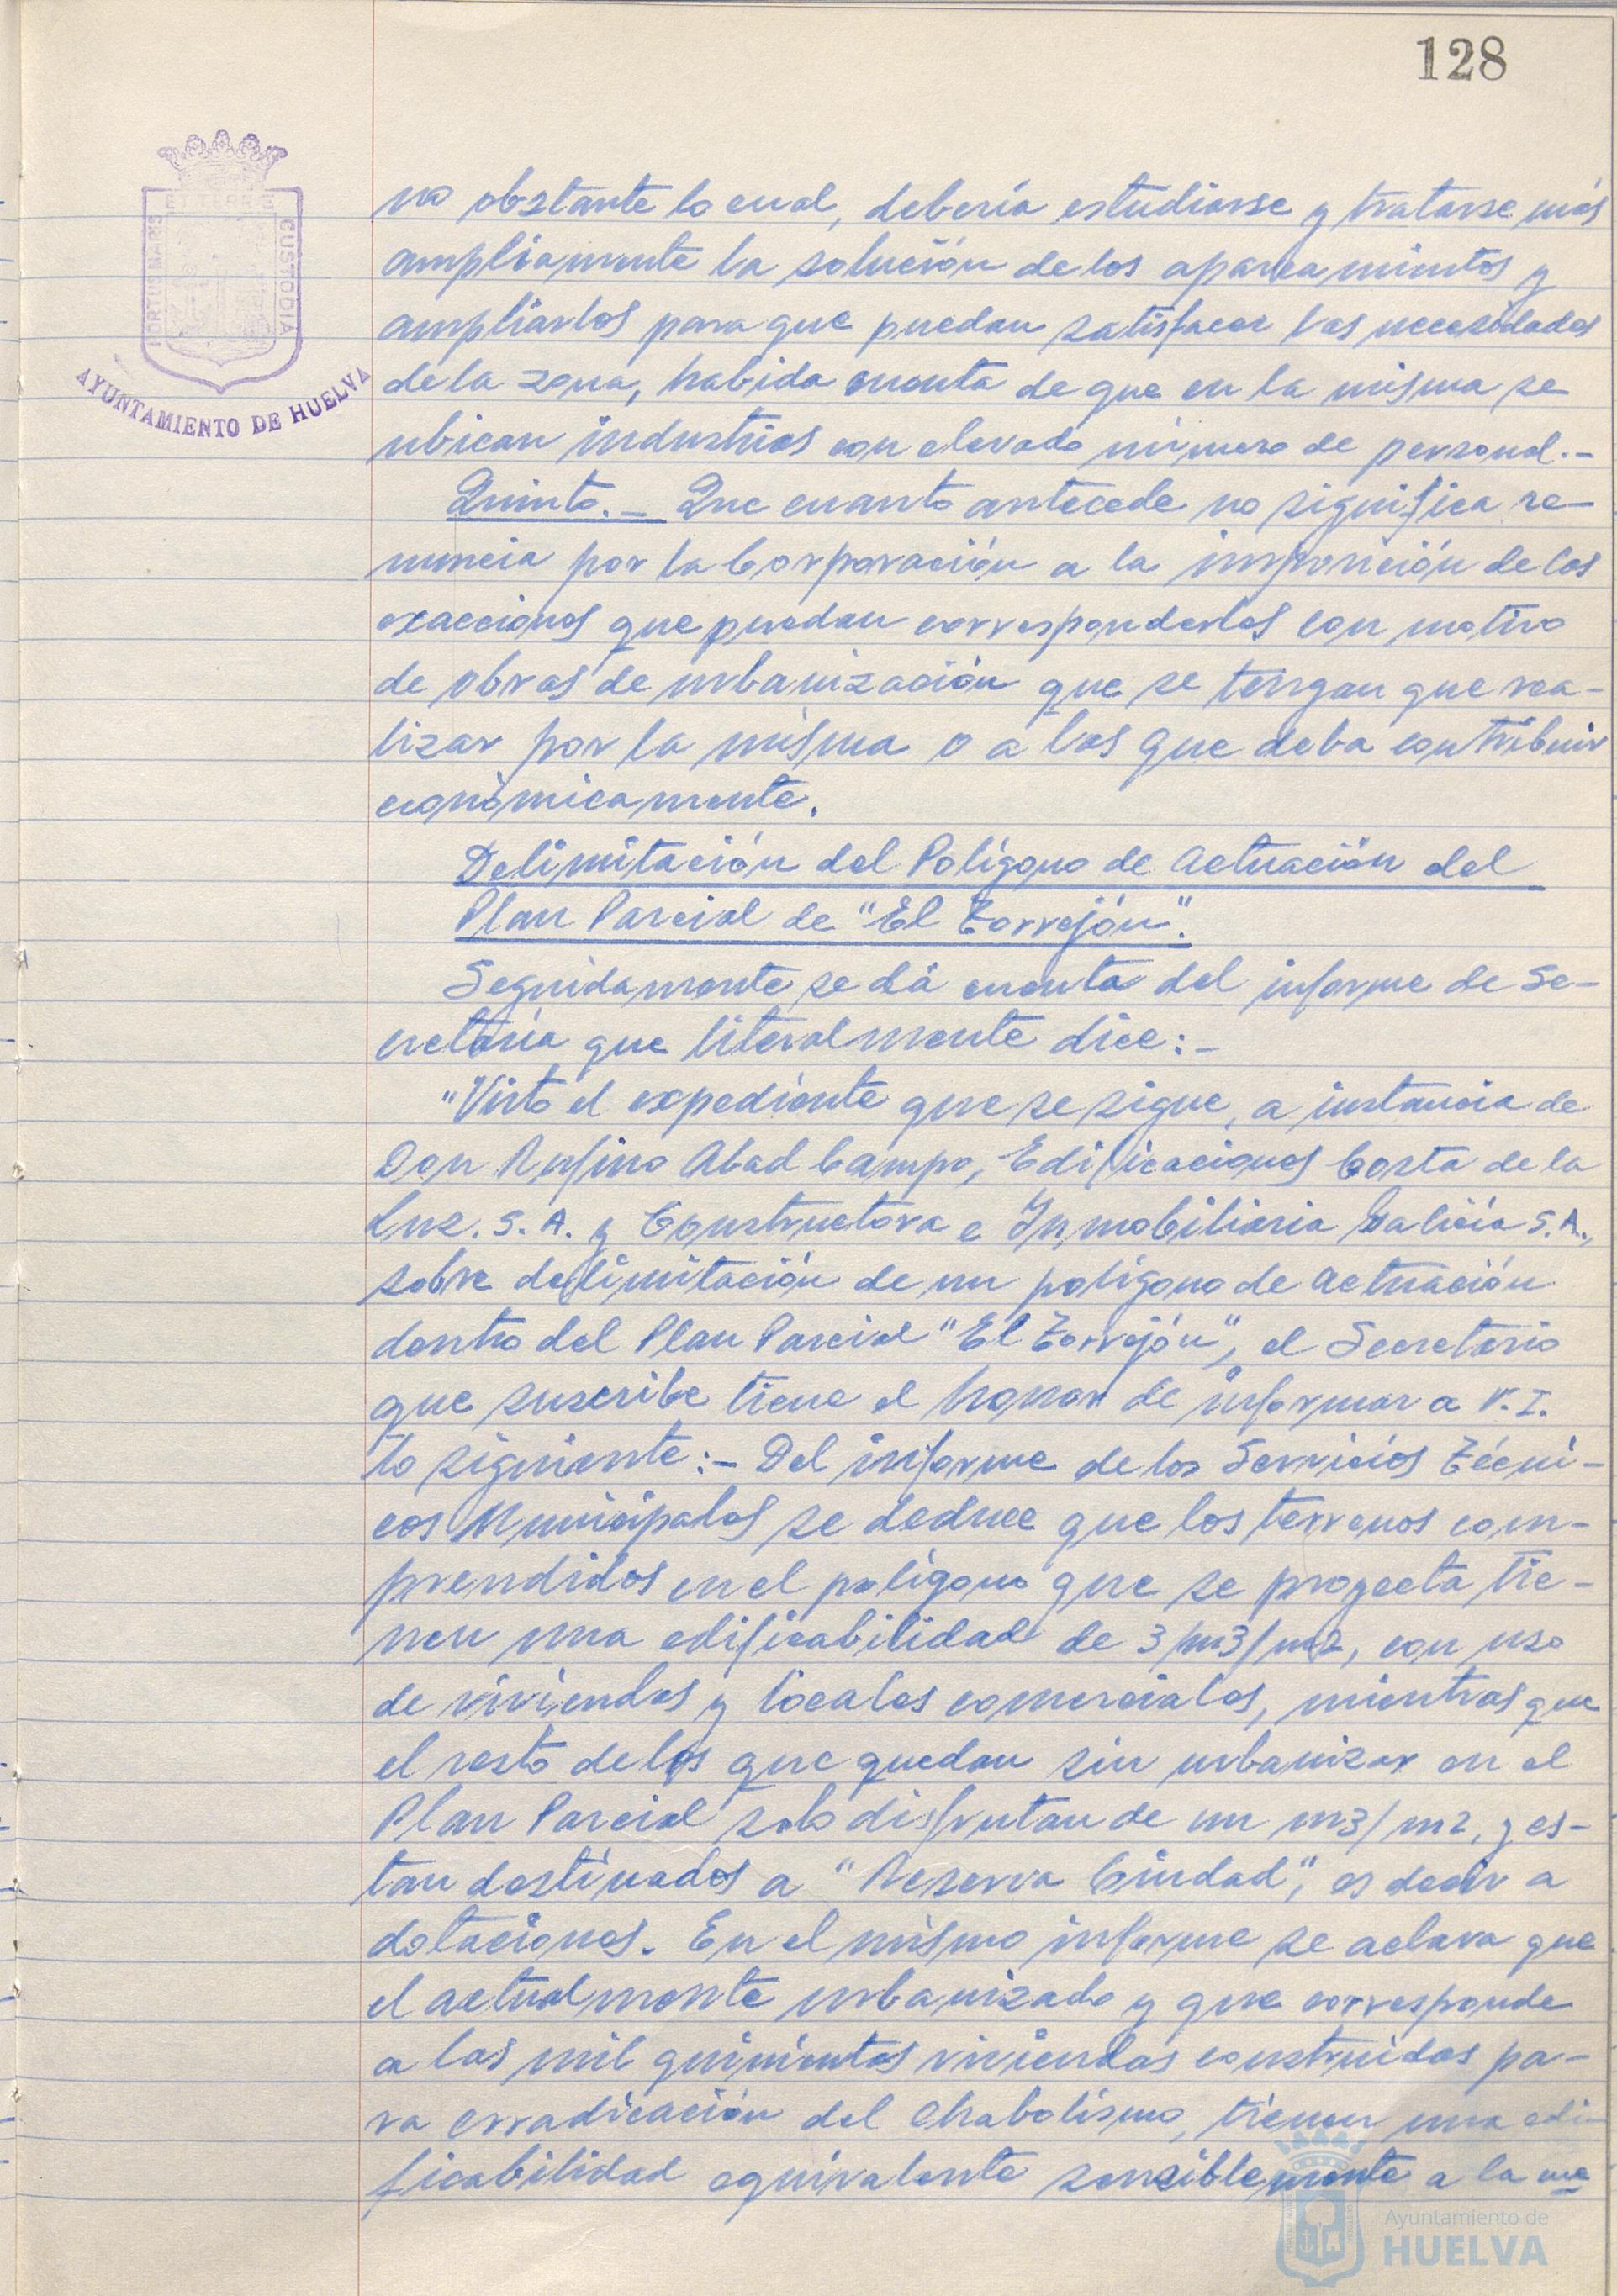 128
PORTUS MARIS
ET TERRE
CUSTODIA
AYUNTAMIENTO DE HUELVA
no obstante lo cual, debería estudiarse y tratarse más
ampliamente la solución de los aparcamientos y
ampliarlos para que puedan satisfacer las necesidades
de la zona, habida cuenta de que en la misma se
ubican industrias con elevado número de personal.-
Quinto.- Que cuanto antecede no significa re-
nuncia por la Corporación a la imposición de las
exacciones que puedan corresponderles con motivo
de obras de urbanización que se tengan que rea-
lizar por la misma o a las que deba contribuir
económicamente.
Delimitación del Polígono de Actuación del
Plan Parcial de "El Torrejón".
Seguidamente se dá cuenta del informe de Se-
cretaria que literalmente dice:-
"Visto el expediente que se sigue, a instancia de
Don Rufino Abad Campo, Edificaciones Costa de la
Luz. S. A. y Constructora e Inmobiliaria Galicia S.A.,
sobre delimitación de un polígono de actuación
dentro del Plan Parcial "El Torrejón", el Secretario
que suscribe tiene el honor de informar a V. I.
lo siguiente:- Del informe de los Servicios Técni-
cos Municipales se deduce que los terrenos com-
prendidos en el polígono que se proyecta tie-
nen una edificabilidad de 3/m3/m2, con uso
de viviendas y locales comerciales, mientras que
el resto de los que quedan sin urbanizar en el
Plan Parcial solo disfrutan de un m3/m2, y es-
tan destinados a "Reserva Ciudad", es decir a
dotaciones. En el mismo informe se aclara que
el actualmente urbanizado y que corresponde
a las mil quinientas viviendas construidas pa-
ra erradicación del chabolismo, tienen una edi-
ficabilidad equivalente sensiblemente a la me
Ayuntamiento de
HUELVA